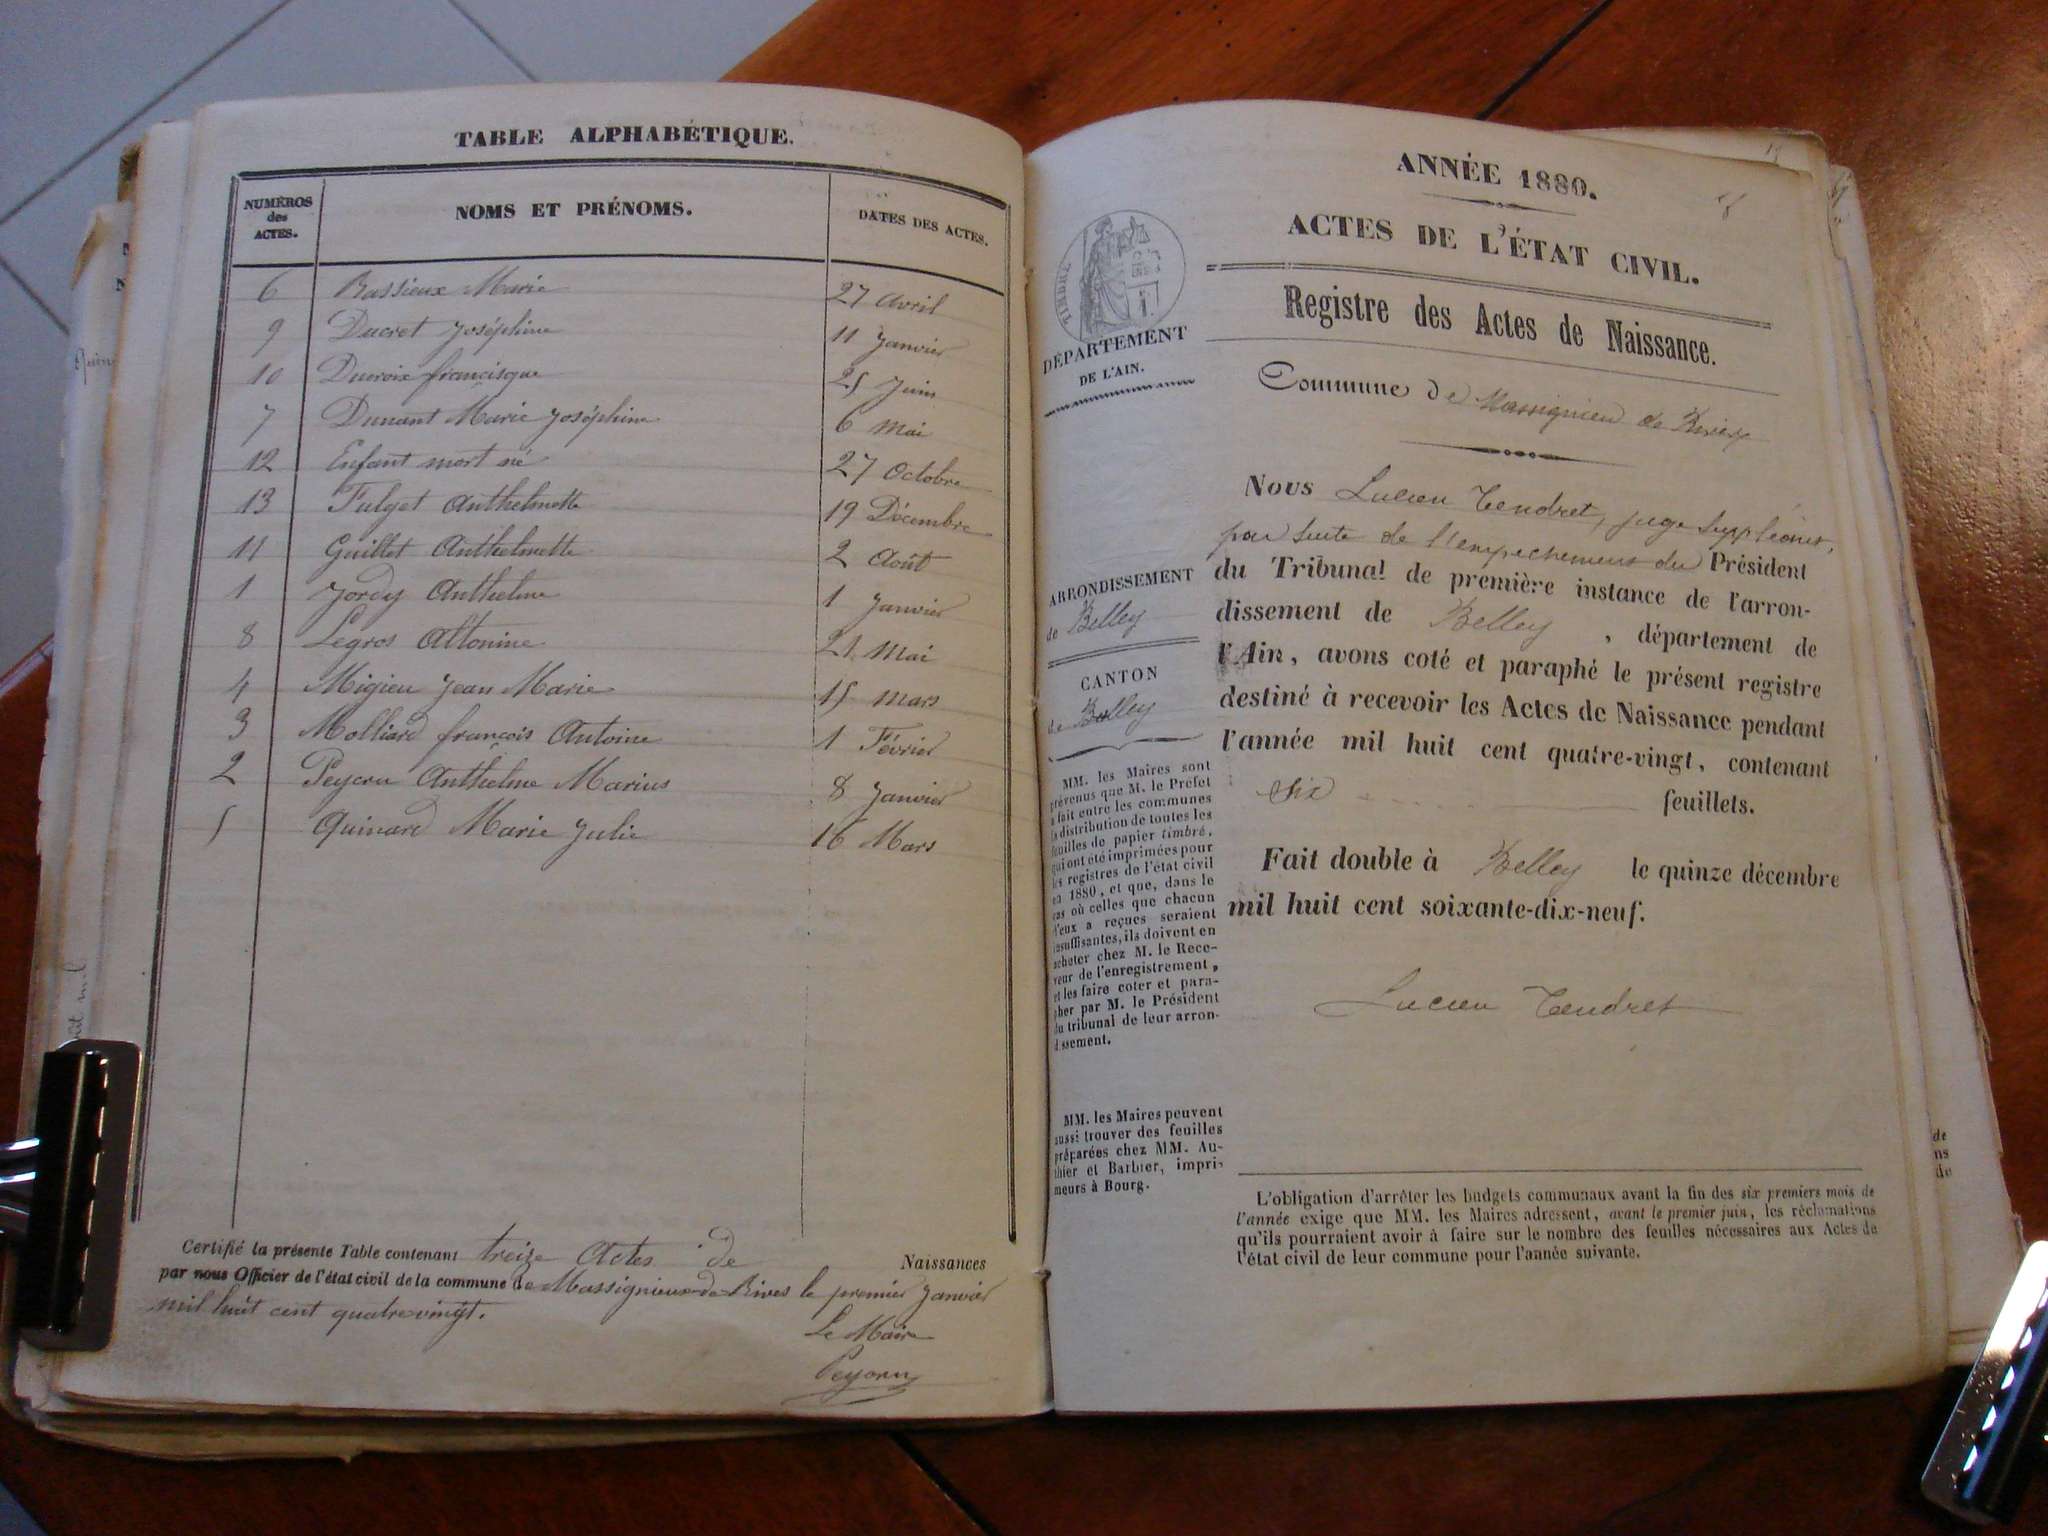 TABLE ALPHABÉTIQUE.
NUMÉROS des ACTES. NOMS ET PRÉNOMS. DATES DES ACTES.
6 Bassieux Marie 27 Avril
9 Ducret Joséphine 11 Janvier
10 Ducroix francisque 25 Juin
7 Dunant Marie Joséphine 6 Mai
12 Enfant mort né 27 Octobre
13 Fulget Anthelmette 19 Décembre
11 Guillet Anthelmette 2 Août
1 Jordy Anthelme 1 Janvier
8 Legros 21 Mai
4 Migieu Jean Marie 15 Mars
3 Molliard françois Antoine 1 Février
2 Peycru Anthelme Marius 8 Janvier
5 Quinard Marie Julie 16 Mars
Certifié la présente Table contenant treize Actes de Naissances
par nous Officier de l'état civil de la commune de Massignieux-de-Rives le premier Janvier
mil huit cent quatre vingt.
Le Maire
Peycru
ANNÉE 1880.
ACTES DE L'ÉTAT CIVIL.
Registre des Actes de Naissance.
Commune de Massignieu de Rives
Nous Lucien Tendret, juge suppléant,
par suite de l'empechement du Président
du Tribunal de première instance de l'arron-
dissement de Belley, département de
l'Ain, avons coté et paraphé le présent registre
destiné à recevoir les Actes de Naissance pendant
l'année mil huit cent quatre-vingt, contenant
six feuillets.
Fait double à Belley le quinze décembre
mil huit cent soixante-dix-neuf.
Lucien Tendret
TIMBRE
DÉPARTEMENT
DE L'AIN.
ARRONDISSEMENT
de Belley
CANTON
de Belley
MM. les Maires sont
prévenus que M. le Préfet
a fait entre les communes
la distribution de toutes les
feuilles de papier timbré,
qui ont été imprimées pour
les registres de l'état civil
en 1880, et que, dans le
cas où celles que chacun
d'eux a reçues seraient
insuffisantes, ils doivent en
acheter chez M. le Rece-
veur de l'enregistrement,
et les faire coter et para-
pher par M. le Président
du tribunal de leur arron-
dissement.
MM. les Maires peuvent
aussi trouver des feuilles
préparées chez MM. Au-
thier et Barbier, impri-
meurs à Bourg.
L'obligation d'arrêter les budgets communaux avant la fin des six premiers mois de
l'année exige que MM. les Maires adressent, avant le premier juin, les réclamations
qu'ils pourraient avoir à faire sur le nombre des feuilles nécessaires aux Actes de
l'état civil de leur commune pour l'année suivante.